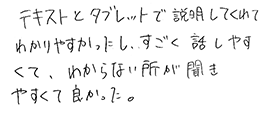 テキストとタブレットで説明してくれて
わかりやすかったし、すごく話しやす
くて、わからない所が聞き
やすくて良かった。